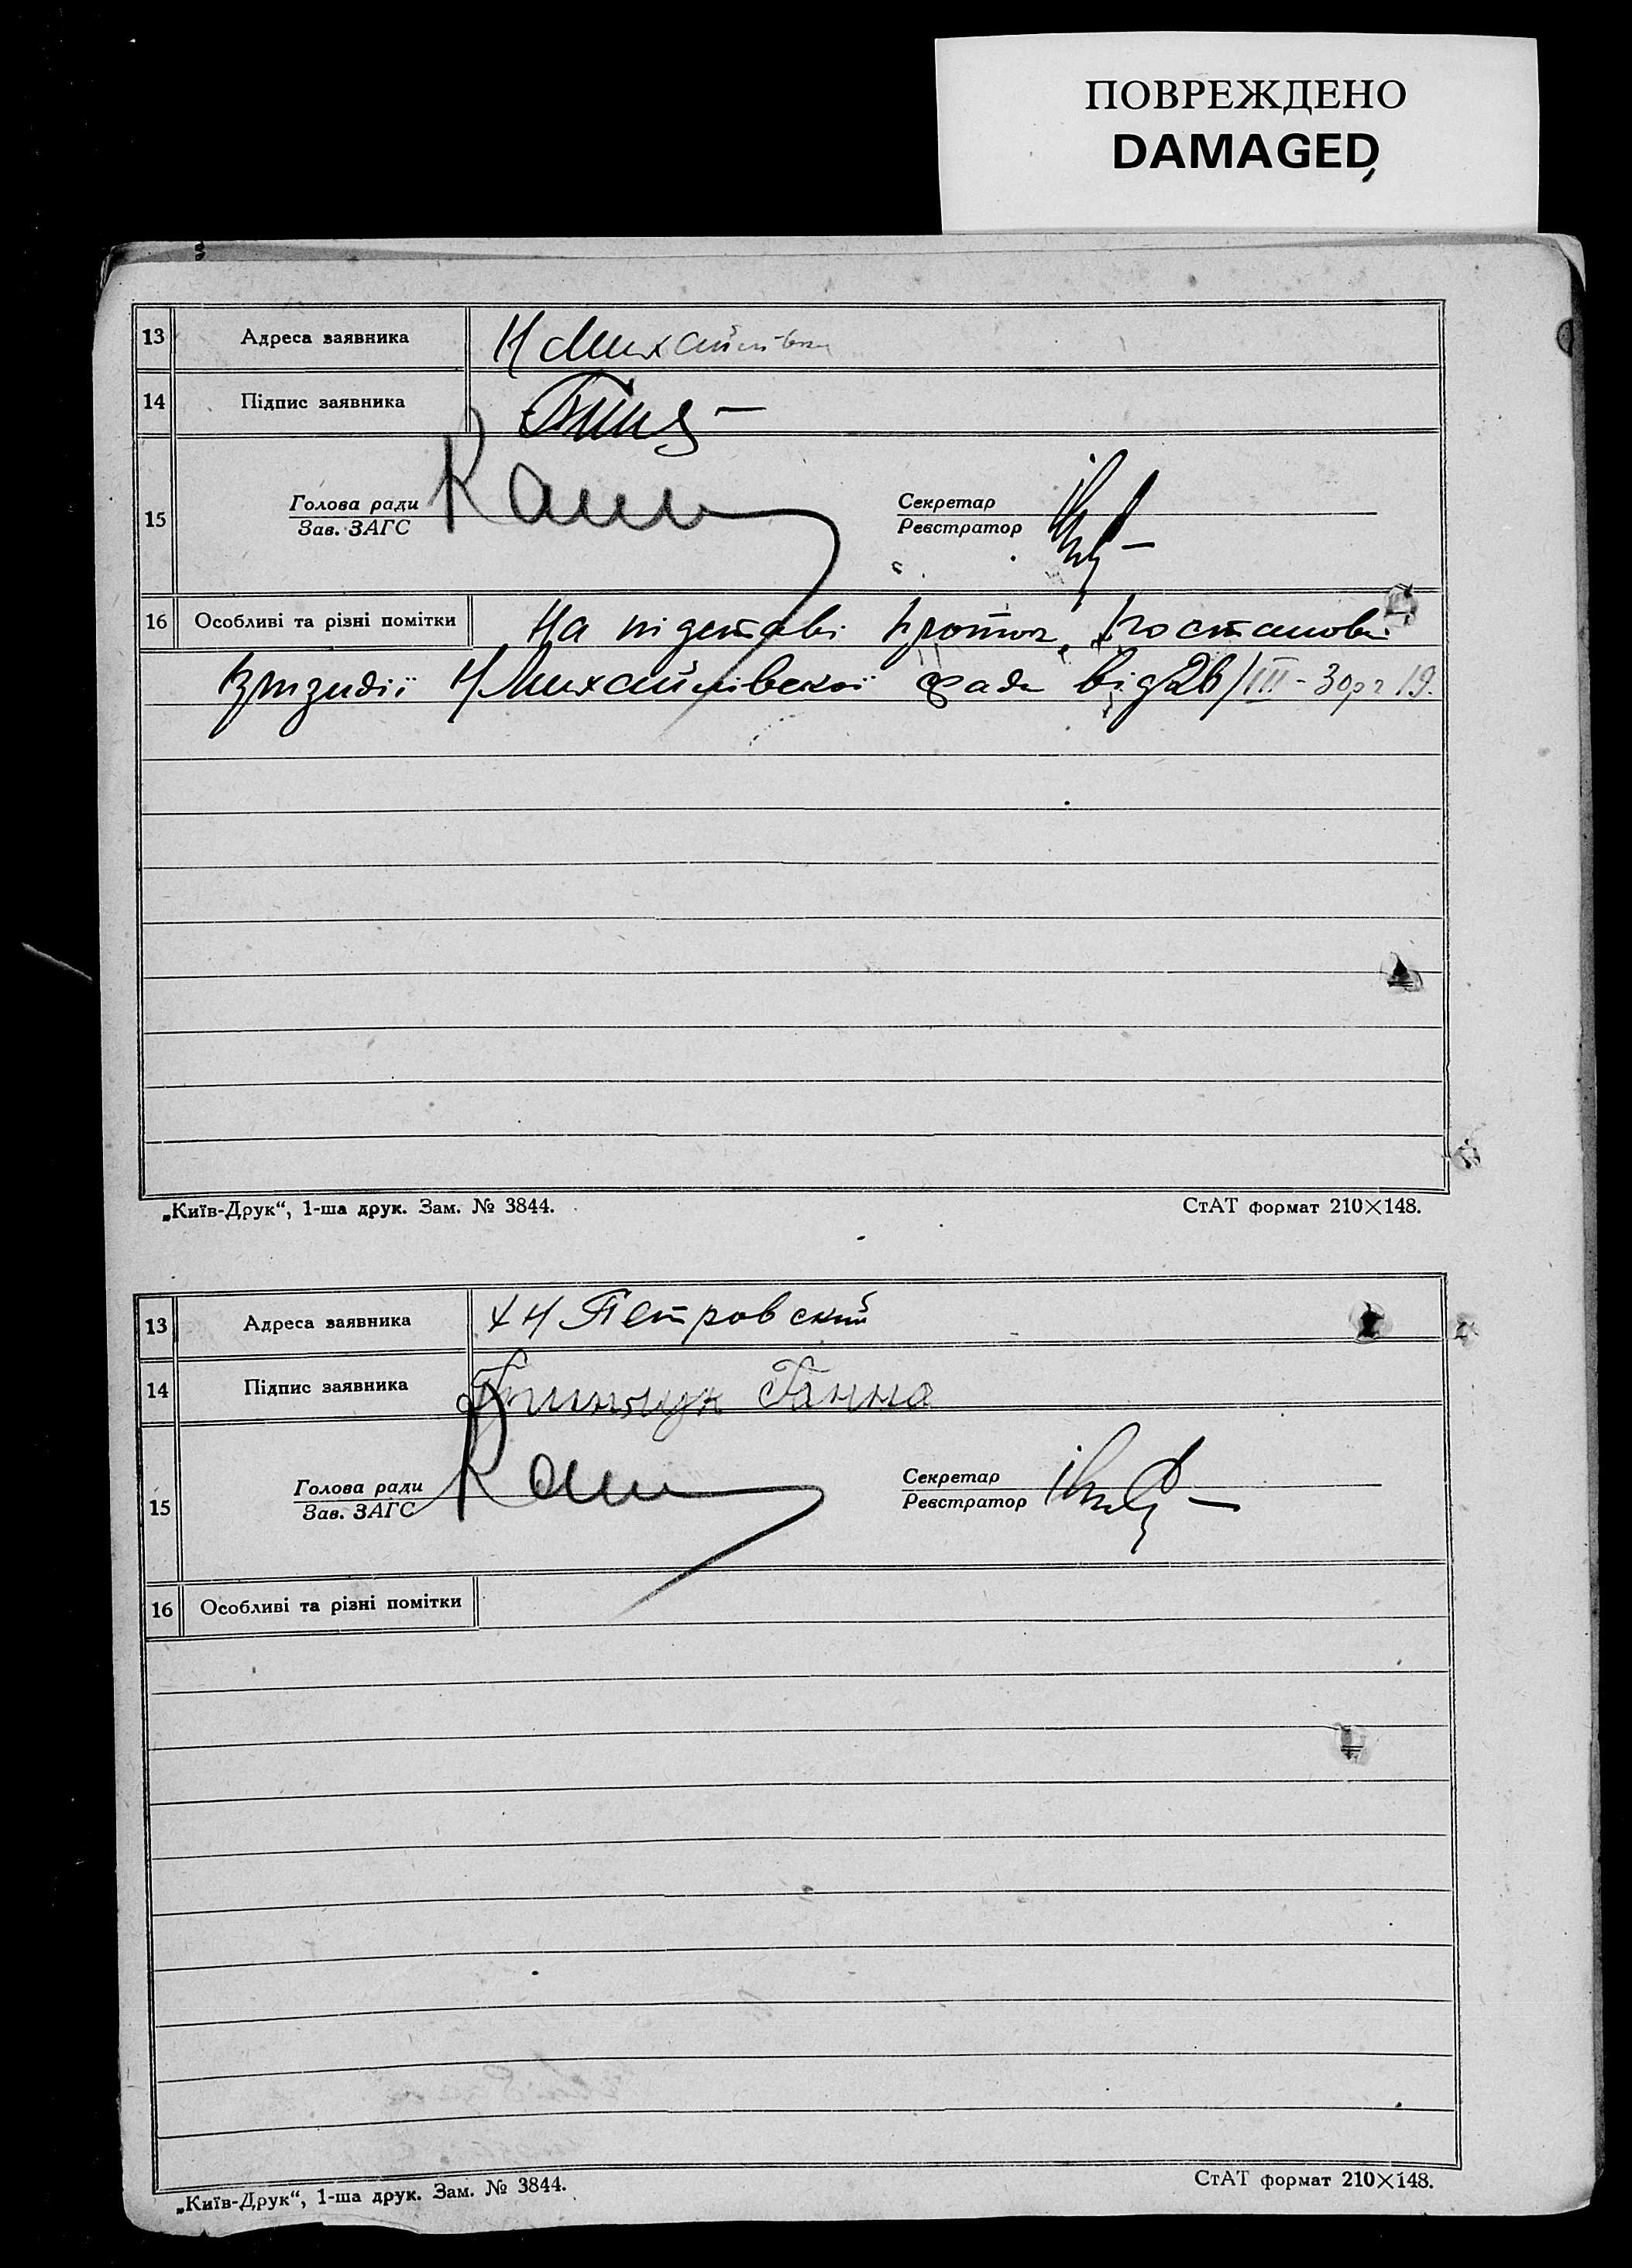 ПОВРЕЖДЕНО
DAMAGED
13 Адреса заявника Н Михайлівка
14 Підпис заявника
15 Голова ради Секретар
Зав. ЗАГС Реєстратор
16 Особливі та різні помітки На підставі проток. постанови
призидії Н Михайлівської ради від 26/III-30р. 19.
„Київ-Друк“, 1-ша друк. Зам. № 3844. СтАТ формат 210×148.
13 Адреса заявника х Н Петровский
14 Підпис заявника Ганна
15 Голова ради Секретар
Зав. ЗАГС Реєстратор
16 Особливі та різні помітки
„Київ-Друк“, 1-ша друк. Зам. № 3844. СтАТ формат 210×148.